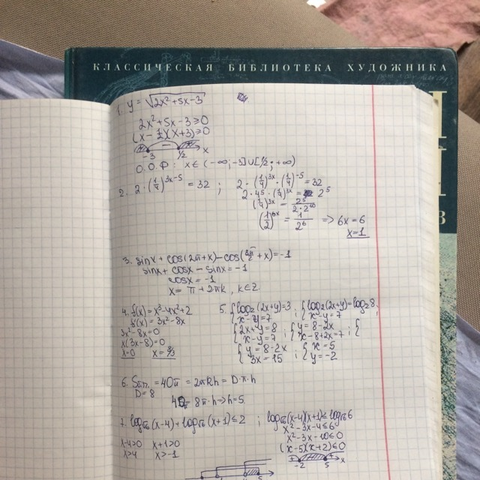 КЛАССИЧЕСКАЯ БИБЛИОТЕКА ХУДОЖНИКА
1. y = √(2x²+5x-3)
2x²+5x-3≥0
(x-1/2)(x+3)≥0
-3 1/2 x
О.О.Р: x∈(-∞,-3]∪[1/2;+∞)
2. 2·(1/4)^(3x-5) = 32 ; 2·(1/4)^(3x)·(1/4)^(-5) = 32
2·4⁵·(1/4)^(3x) = 2⁵
(1/4)^(3x) = 2⁵/(2·2¹⁰)
(1/2)^(6x) = 1/2⁶ => 6x=6
x=1
3. sinx+cos(2π+x)-cos(3π/2+x)=-1
sinx+cosx-sinx=-1
cosx=-1
x=π+2πk, k∈Z
4. f(x)=x³-4x²+2
f'(x)=3x²-8x
3x²-8x=0
x(3x-8)=0
x=0 x=8/3
5. {log₂(2x+y)=3 ; {log₂(2x+y)=log₂8,
x-y=7 x-y=7
{2x+y=8 ; {y=8-2x ; {
x-y=7 x-8+2x=7
{y=8-2x ; {x=5
3x=15 y=-2
6. Sбп.=40π=2πRh=D·π·h
D=8
40π=8π·h=>h=5.
7. log√6(x-4)+log√6(x+1)≤2 ; log√6(x-4)(x+1)≤log√6 6
x-4>0 x+1>0
x>4 x>-1
x²-3x-4≤6
x²-3x-10≤0
(x-5)(x+2)≤0
-2 5 x